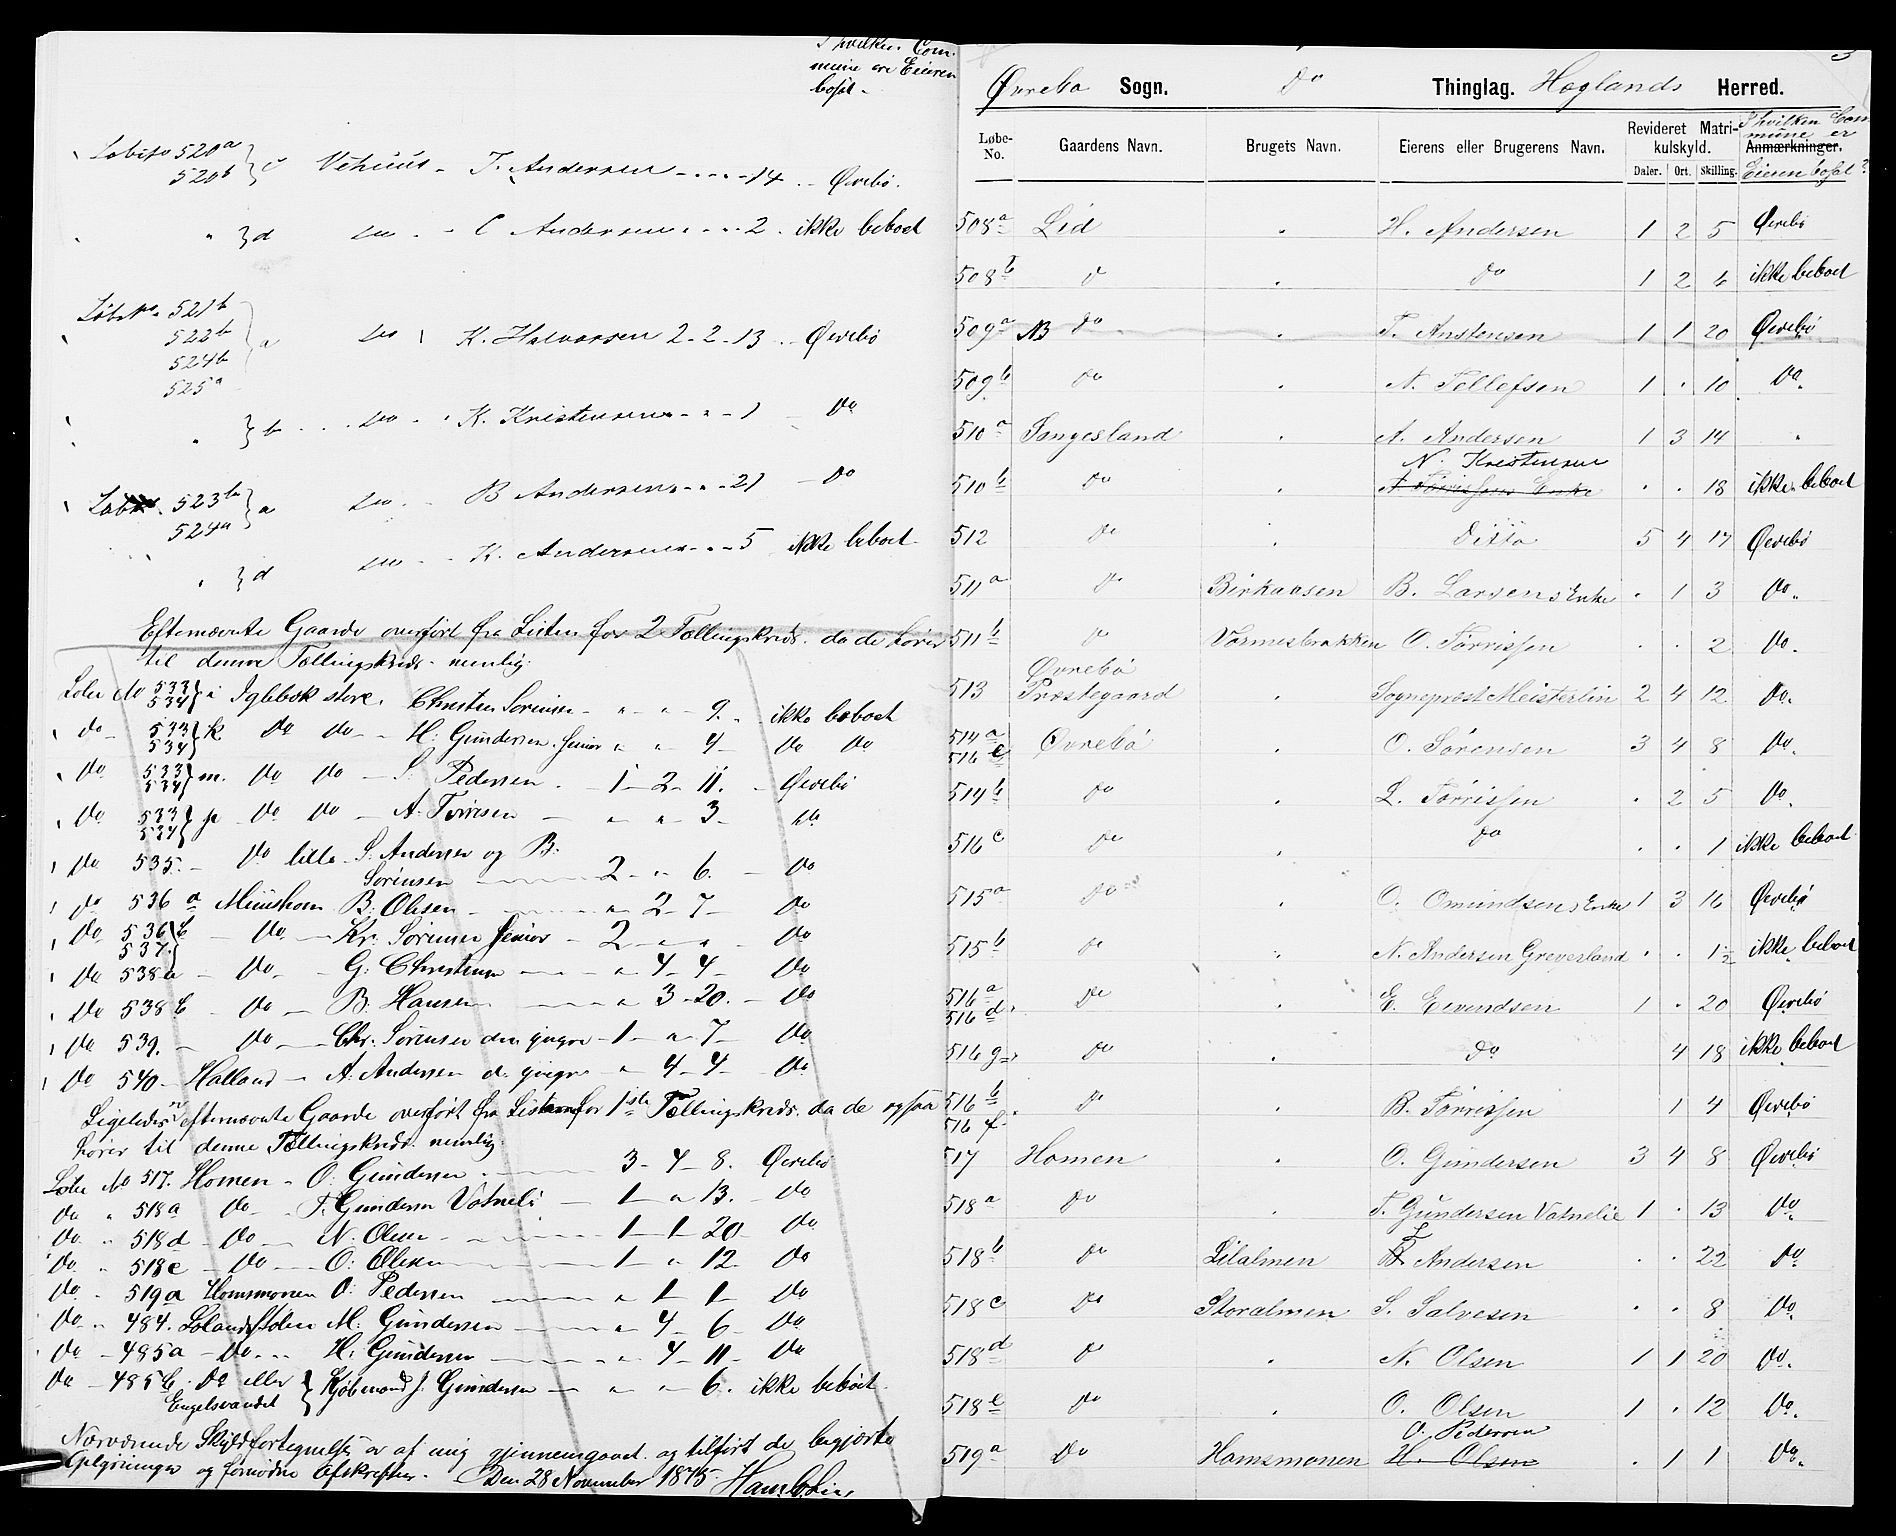 I hvilken Com-
mune er Eieren
bosat -
Løbeno 520a
520b } c Vehuus - T. Andersen - - - - 14 .. Øvrebø.
" } d do . - C Andersen - - - 2 . ikke beboet
Løbeno 521b
522b
524b } a do K. Halvorsen 2 - 2 - 13 .. Øvrebø
525a
" } b ... do . K. Kristensen - " - 1 - Do
Løbno. 523b
524a } a do - B Andersen - - 21 - Do
" } d do - K. Andersen - - 5 ikke beboet
Efternævnte Gaarde overført fra Listen for 2 Tællingskreds. da de hører
til denne Tællingskreds - nemlig:
Løbe No 533
534 } i Iglebæk store. Christen Sørensen - " - " - 9. - ikke beboet
" do - 533
534 } k Do Do - H: Gundersen Senior " " 4 - Do Do
" Do 533
534 } m. Do Do - S: Pedersen . - 1 - 2 - 11. - Øvrebø
" Do 533
534 } p Do Do - A: Tørrisen - " " 3 - Do
" Do 535. - Do lille - S. Andersen og B:
Sørensen - 2 - " 6. - Do
" Do 536 a B: Olsen - " - 2 - 7 - Do
" Do 536 b
537. } - Do - Kr. Sørensen Senior - 2 - " - " - Do
" Do 538a - Do - G: Christensen - " - 4 - 4 - Do
" Do 538b - Do - B. Hansen - " 3 - 20. - Do
" Do 539. - Do - Chr. Sørensen den yngre - 1 - " - 7 - Do
" Do 540 - Halland - A. Andersen d. yngre - " 4 - 4 - Do
Ligeledes er efternævnte Gaarde overført fra Listen for 1ste Tællingskreds. da de ogsaa
hører til denne Tællingskreds. nemlig:
Løbe No 517. Homen - O: Gundersen - 3 - 4 - 8. Øvrebø
Do " 518a Do - T. Gundersen Vatneli - 1 - " 13. - Do
Do " 518d - Do - N. Olsen - 1 - 1 - 20 - Do
Do " 518e - Do - O: Olsen - 1 - " 12 - Do
Do " 519a Homsmonen O: Pedersen - " 1 - 1 - Do
Do " 484. M: Gundersen - " 4 - 6 - Do
Do - 485a - Do ... H: Gundersen - " 4 - 11 - Do
Do - 485b - Do eller
Engelsvandet } Kjøbmand J. Gundersen - " " 6. ikke beboet
Nærværende Skyldfortegnelse er af mig gjennemgaaet og tilført de begjærte
Oplysninger og fornødne Afskrifter. Den 28 November 1875.
3
Øvrebø Sogn. Do Thinglag. Høglands Herred.
Løbe-No. Gaardens Navn. Brugets Navn. Eierens eller Brugerens Navn. Revideret Matrikulskyld. Daler. Ort. Skilling. Anmærkninger. I hvilken Commune er Eieren bosat?
508a Lid " H. Andersen 1 2 5 Øvrebø
508b Do " Do 1 2 6 ikke beboet
509a NB Do " T. Anstensen 1 1 20 Øvrebø
509b Do " N. Tellefsen 1 " 10 Do.
510a Tangesland " A. Andersen 1 3 14 "
N. Kristensen
510b Do " A Tørrissens Enke " " 18 ikke beboet
512 Do " Ditto 5 4 17 Øvrebø
511a Do Birkaasen B. Larsens Enke " 1 3 Do.
511b Do Vormesbrækken O. Tørrissen " " 2 Do.
513 Øvrebø Præstegaard " Sogneprest Meisterlin 2 4 12 Do.
514a
516e Øvrebø " O. Sørensen 3 4 8 Do.
514b Do " L. Tørrissen " 2 5 Do.
516c Do " Do " " 1 ikke beboet
515a Do " O. Omundsens Enke 1 3 16 Øvrebø
515b Do " N. Andersen Greversland " " 1½ ikke beboet
516a
516d Do " E. Eivendsen 1 " 20 Øvrebø
516g Do " Do 4 18 ikke beboet
516b
516f Do " B. Tørrissen 1 4 Øvrebø
517 Homen " O. Gundersen 3 4 8 Øvrebø
518a Do " T. Gundersen Vatnelie 1 " 13 Do.
518b Do Lilalmen T Andersen " " 22 Do
518c Do Storalmen S. Salvesen " " 8 Do.
518d Do " N. Olsen 1 1 20 Do.
518e Do " O. Olsen 1 " 12 Do.
O. Pedersen
519a Do Homsmonen H. Olsen " 1 1 Do.